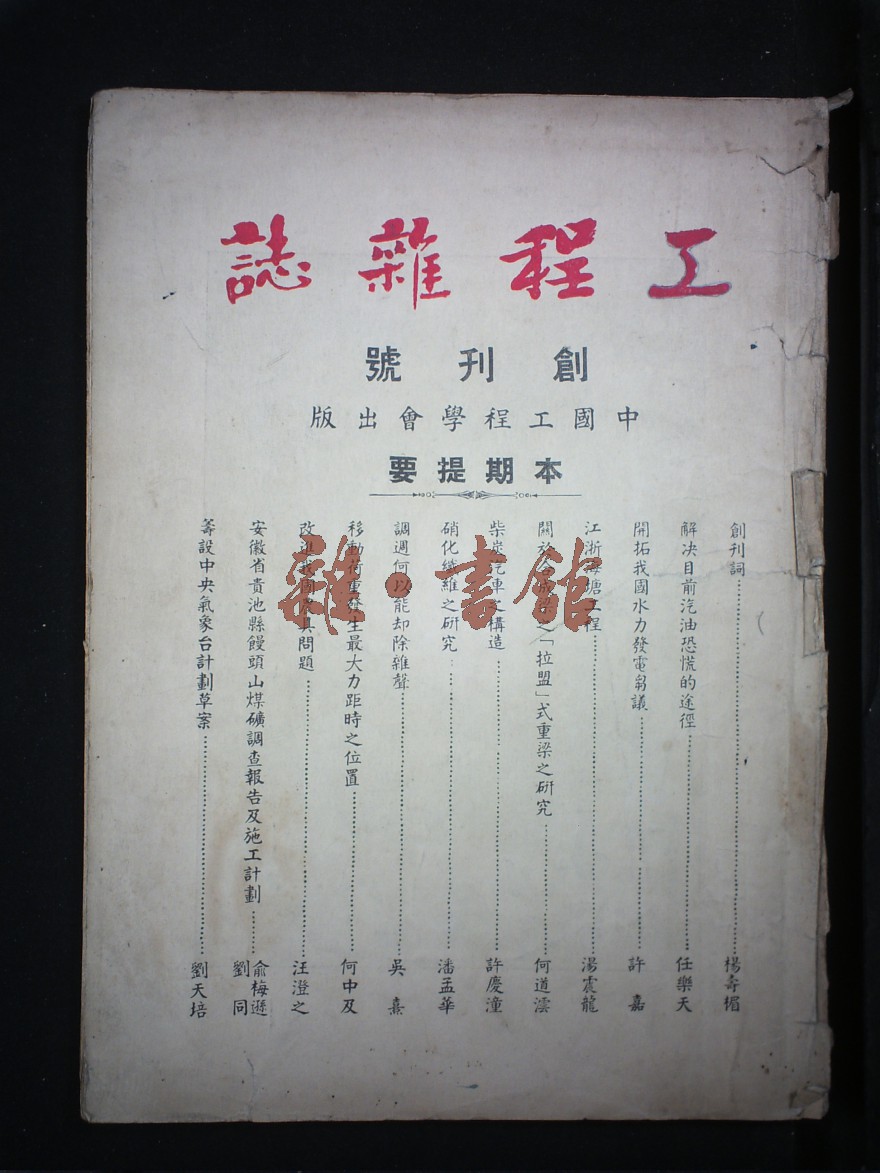 工程雜誌
創刊號
中國工程學會出版
本期提要
創刊詞 楊壽楣
解決目前汽油恐慌的途徑 任樂天
開拓我國水力發電芻議 許嘉
江浙海塘工程 湯震龍
關於 之「拉盟」式重梁之研究 何道澐
柴炭汽車之構造 許慶潼
硝化纖維之研究 潘孟華
調週何以能却除雜聲 吳熹
移動荷重發生最大力距時之位置 何中及
改進我國農具問題 汪澄之
安徽省貴池縣饅頭山煤礦調查報告及施工計劃 俞梅遜 劉同
籌設中央氣象台計劃草案 劉天培
雜·書館